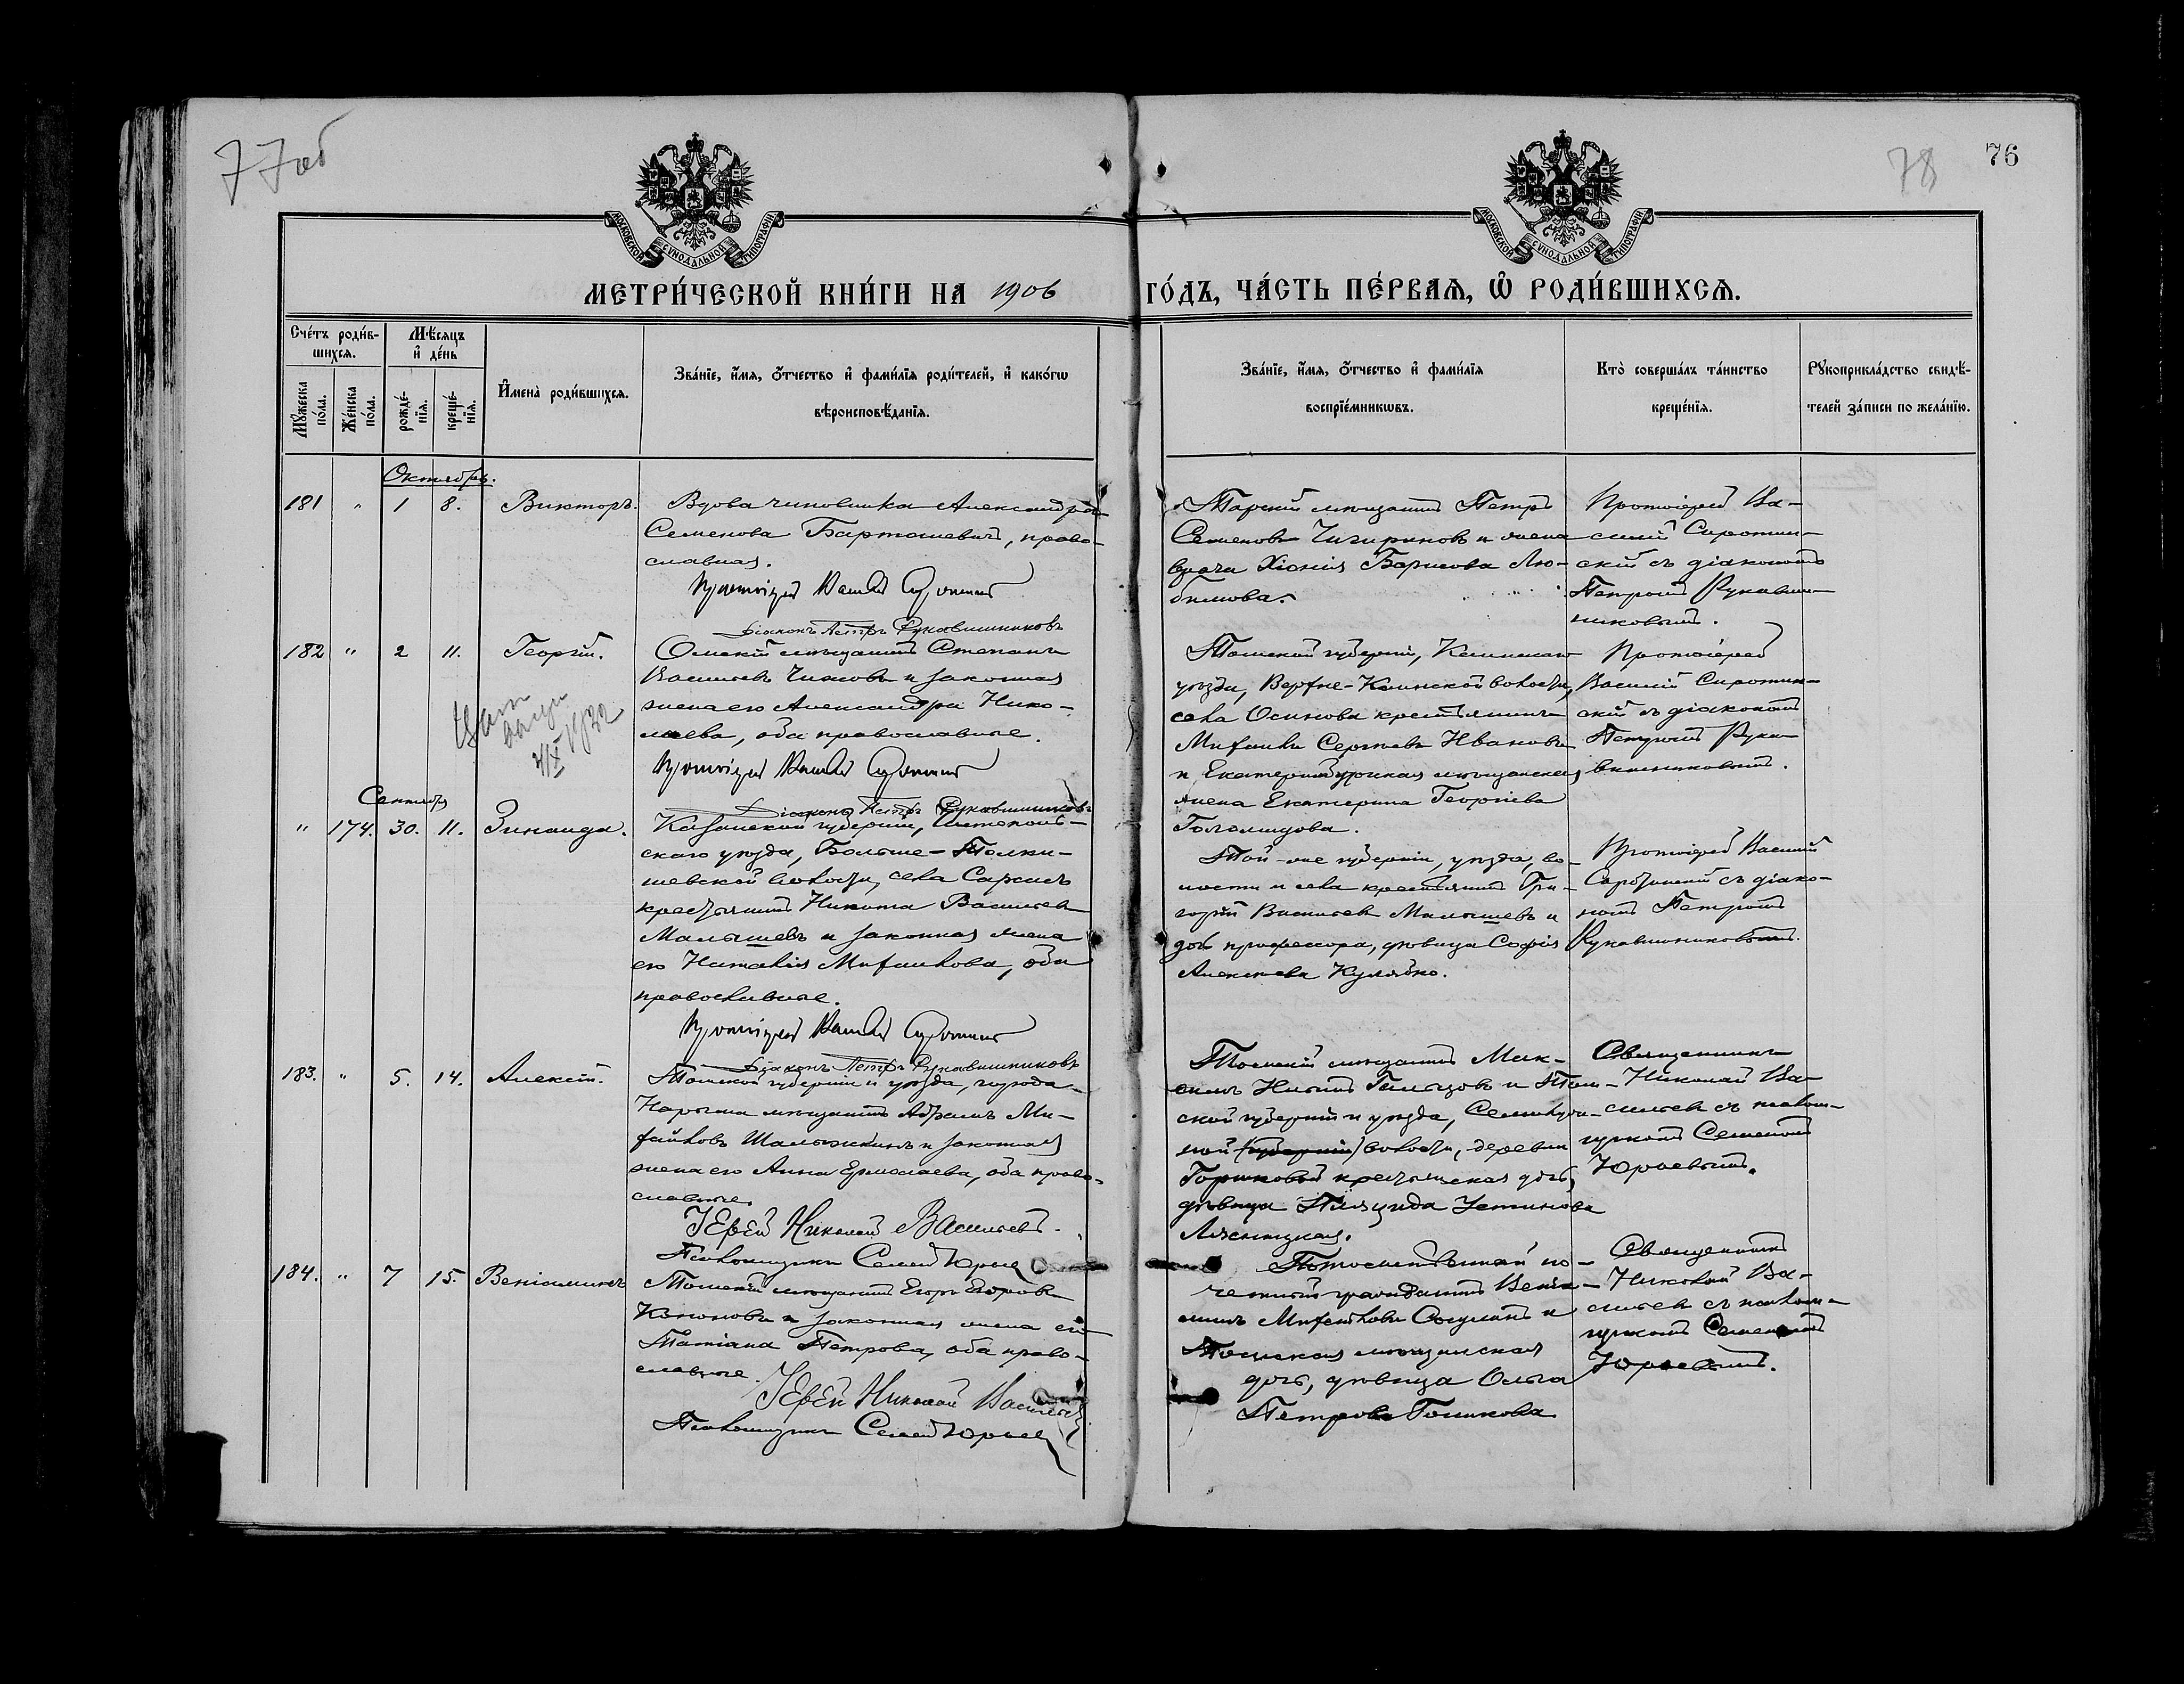 77об
78
76
МОСКОВСКОЙ СѴНОДАЛЬНОЙ ТИПОГРАФІИ
МОСКОВСКОЙ СѴНОДАЛЬНОЙ ТИПОГРАФІИ
МЕТРИ́ЧЕСКОЙ КНИ́ГИ НА 1906 ГО́ДЪ, ЧА́СТЬ ПЕ́РВАЯ, Ѡ҆ РОДИ́ВШИХСЯ.
Сче́тъ роди́в-
шихся.
Мꙋ́жеска по́ла.
Же́нска по́ла.
Мѣ́сяцъ
и҆ де́нь
рожде́-
нїя.
креще́-
нїя.
И҆мена̀ роди́вшихся.
Зва́нїе, и҆́мя, ѻ҆́тчество и҆ фами́лїя роди́телей, и҆ како́гѡ
вѣроисповѣ́данїя.
Зва́нїе, и҆́мя, ѻ҆́тчество и҆ фами́лїя
воспрїе́мникѡвъ.
Кто̀ соверша́лъ та́инство
креще́нїя.
Рꙋкоприкла́дство свидѣ́-
телей за́писи по жела́нїю.
Октябрь.
181 " 1 8. Викторъ.
Вдова чиновника Александра
Семенова Бартошевичъ, право-
славная.
Протоіерей Василій Сиротинскій
Діаконъ Петръ Рукавишниковъ
Тарскій мѣщанинъ Петръ
Семеновъ Чигириновъ и жена
врача Хіонія Борисова Лю-
бимова.
Протоіерей Ва-
силій Сиротин-
скій съ діакономъ
Петромъ Рукавиш-
никовымъ.
182 " 2 11. Георгій.
Омскій мѣщанинъ Степанъ
Васильевъ Чиасовъ и законная
жена его Александра Нико-
лаева, оба православные.
Протоіерей Василій Сиротинскій
Діаконъ Петръ Рукавишниковъ
1932
Томской губерніи, Каинскаго
уѣзда, Верхне-Каинской волости,
села Осинова крестьянинъ
Михаилъ Сергѣевъ Ивановъ
и Екатеринбургская мѣщанская
жена Екатерина Георгіева
Протоіерей
Василій Сиротин-
скій съ діакономъ
Петромъ Рука-
вишниковымъ.
Сентябрь
" 174. 30. 11. Зинаида.
Казанской губерніи, Чистополь-
скаго уѣзда, Больше-Толки-
шевской волости, села Сарсасъ
крестьянинъ Никита Васильевъ
Малышевъ и законная жена
его Наталія Михаилова, оба
православные.
Протоіерей Василій Сиротинскій
Діаконъ Петръ Рукавишниковъ
Той-же губерніи, уѣзда, во-
лости и села крестьянинъ Гри-
горій Васильевъ Малышевъ и
дочь профессора, дѣвица Софія
Алексѣева Кулябко.
Протоіерей Василій
Сиротинскій съ діако-
номъ Петромъ
Рукавишниковымъ.
183. " 5. 14. Алексій.
Томской губерніи и уѣзда, города
Нарыма мѣщанинъ Абрамъ Ми-
хайловъ Шалыжкинъ и законная
жена его Анна Ермолаева, оба право-
славные.
Іерей Николай Васильевъ.
Псаломщикъ Семенъ Юрьевъ
Томскій мѣщанинъ Мак-
симъ Ильинъ Гильцовъ и Том-
ской губерніи и уѣзда, Семилуж-
ной (губерніи) волости, деревни
крестьянская дочь,
дѣвица Устинова
Протоіерей
Священникъ
Николай Ва-
сильевъ съ псалом-
щикомъ Семеномъ
Юрьевымъ.
184. " 7 15. Веніаминъ
Томскій мѣщанинъ Егоръ Егоровъ
Кононовъ и законная жена его
Татіана Петрова, оба право-
славные.
Іерей Николай Васильевъ
Псаломщикъ Семенъ Юрьевъ
Потомственный по-
четный гражданинъ Веніа-
минъ Михаиловъ и
Томская мѣщанская
дочь, дѣвица Ольга
Петрова Голикова
Священникъ
Николай Ва-
сильевъ съ псалом-
щикомъ Семеномъ
Юрьевымъ.